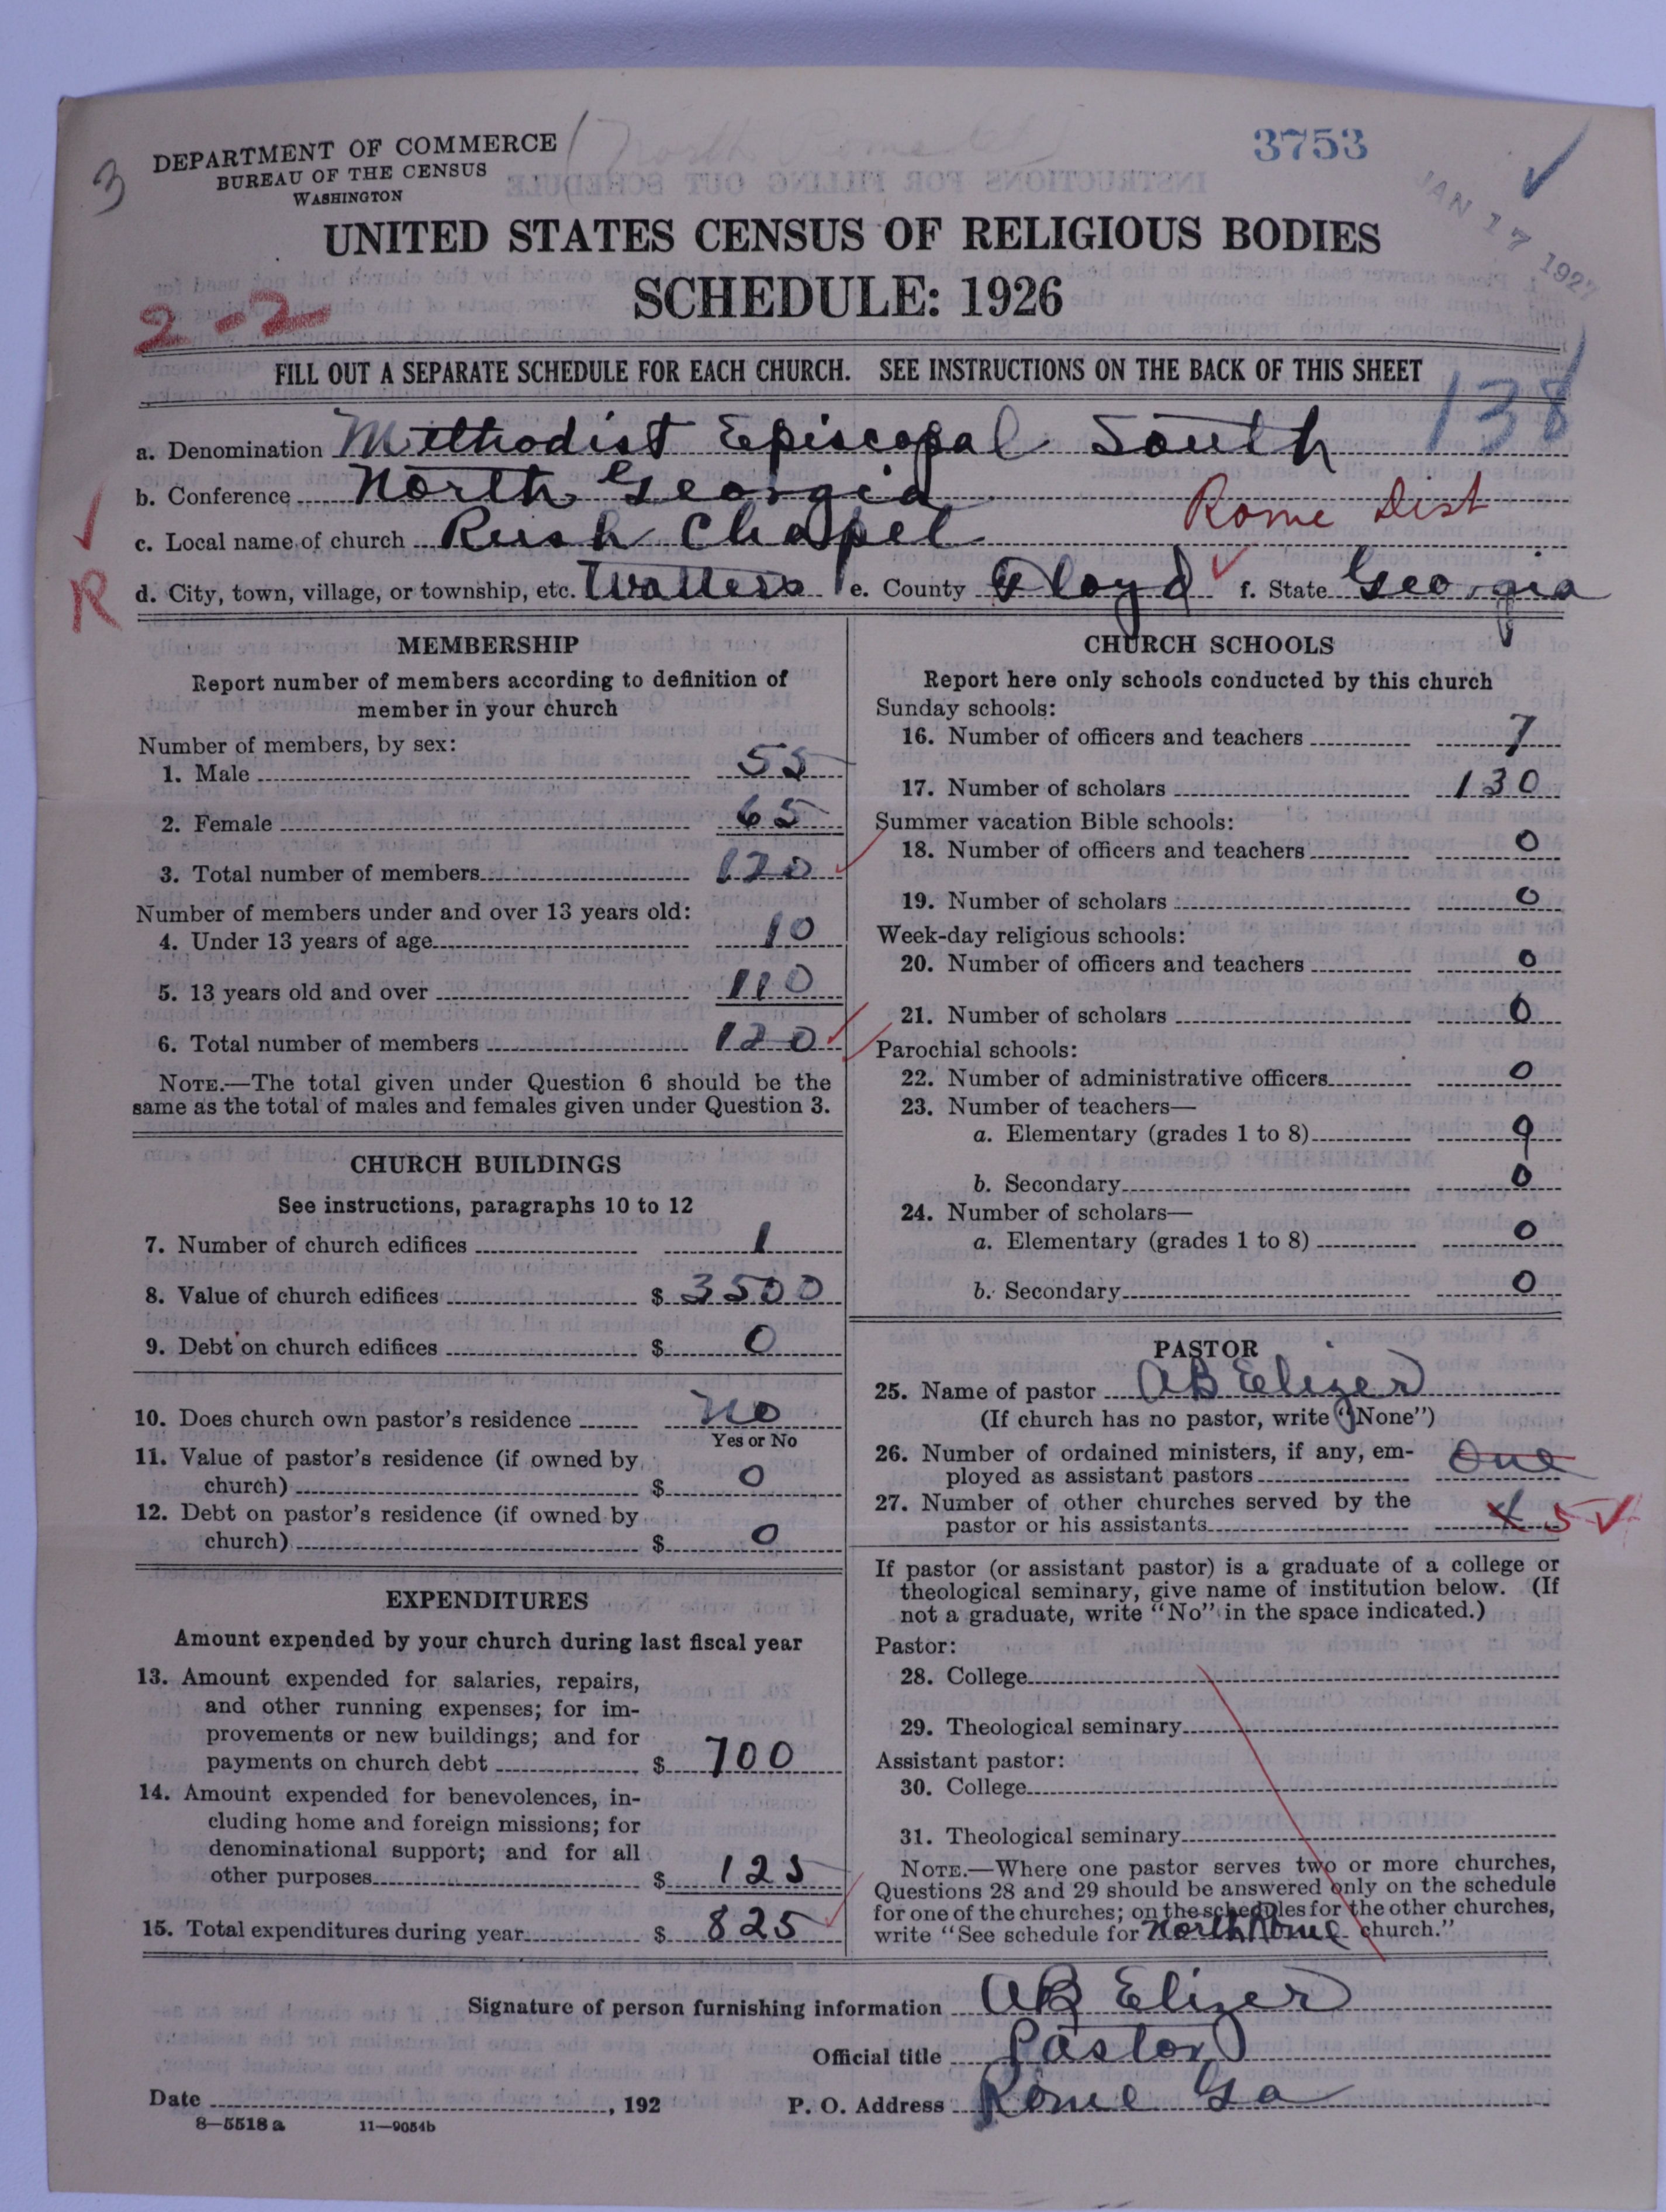 (North Rome Ct)
3753
3
DEPARTMENT OF COMMERCE
BUREAU OF THE CENSUS
WASHINGTON
JAN 17 1927
UNITED STATES CENSUS OF RELIGIOUS BODIES
SCHEDULE: 1926
2-2
FILL OUT A SEPARATE SCHEDULE FOR EACH CHURCH. SEE INSTRUCTIONS ON THE BACK OF THIS SHEET
138
a. Denomination Methodist Episcopal South
b. Conference North Georgia
Rome Dist
c. Local name of church Rush Chapel
R
d. City, town, village, or township, etc. Watters e. County Floyd f. State Georgia
MEMBERSHIP
Report number of members according to definition of
member in your church
Number of members, by sex:
1. Male 55
2. Female 65
3. Total number of members 120
Number of members under and over 13 years old:
4. Under 13 years of age 10
5. 13 years old and over 110
6. Total number of members 120
NOTE.—The total given under Question 6 should be the
same as the total of males and females given under Question 3.
CHURCH BUILDINGS
See instructions, paragraphs 10 to 12
7. Number of church edifices 1
8. Value of church edifices $ 3500
9. Debt on church edifices $ 0
10. Does church own pastor's residence No
Yes or No
11. Value of pastor's residence (if owned by
church) $ 0
12. Debt on pastor's residence (if owned by
church) $ 0
EXPENDITURES
Amount expended by your church during last fiscal year
13. Amount expended for salaries, repairs,
and other running expenses; for im-
provements or new buildings; and for
payments on church debt $ 700
14. Amount expended for benevolences, in-
cluding home and foreign missions; for
denominational support; and for all
other purposes $ 125
15. Total expenditures during year $ 825
CHURCH SCHOOLS
Report here only schools conducted by this church
Sunday schools:
16. Number of officers and teachers 7
17. Number of scholars 130
Summer vacation Bible schools:
18. Number of officers and teachers 0
19. Number of scholars 0
Week-day religious schools:
20. Number of officers and teachers 0
21. Number of scholars 0
Parochial schools:
22. Number of administrative officers 0
23. Number of teachers—
a. Elementary (grades 1 to 8) 0
b. Secondary 0
24. Number of scholars—
a. Elementary (grades 1 to 8) 0
b. Secondary 0
PASTOR
25. Name of pastor AB Elizer
(If church has no pastor, write "None")
26. Number of ordained ministers, if any, em-
ployed as assistant pastors One
27. Number of other churches served by the
pastor or his assistants 5
If pastor (or assistant pastor) is a graduate of a college or
theological seminary, give name of institution below. (If
not a graduate, write "No" in the space indicated.)
Pastor:
28. College
29. Theological seminary
Assistant pastor:
30. College
31. Theological seminary
NOTE.—Where one pastor serves two or more churches,
Questions 28 and 29 should be answered only on the schedule
for one of the churches; on the schedules for the other churches,
write "See schedule for North Rome church."
Signature of person furnishing information AB Elizer
Official title Pastor
Date , 192 P. O. Address Rome Ga
8—5518 a 11—9054b